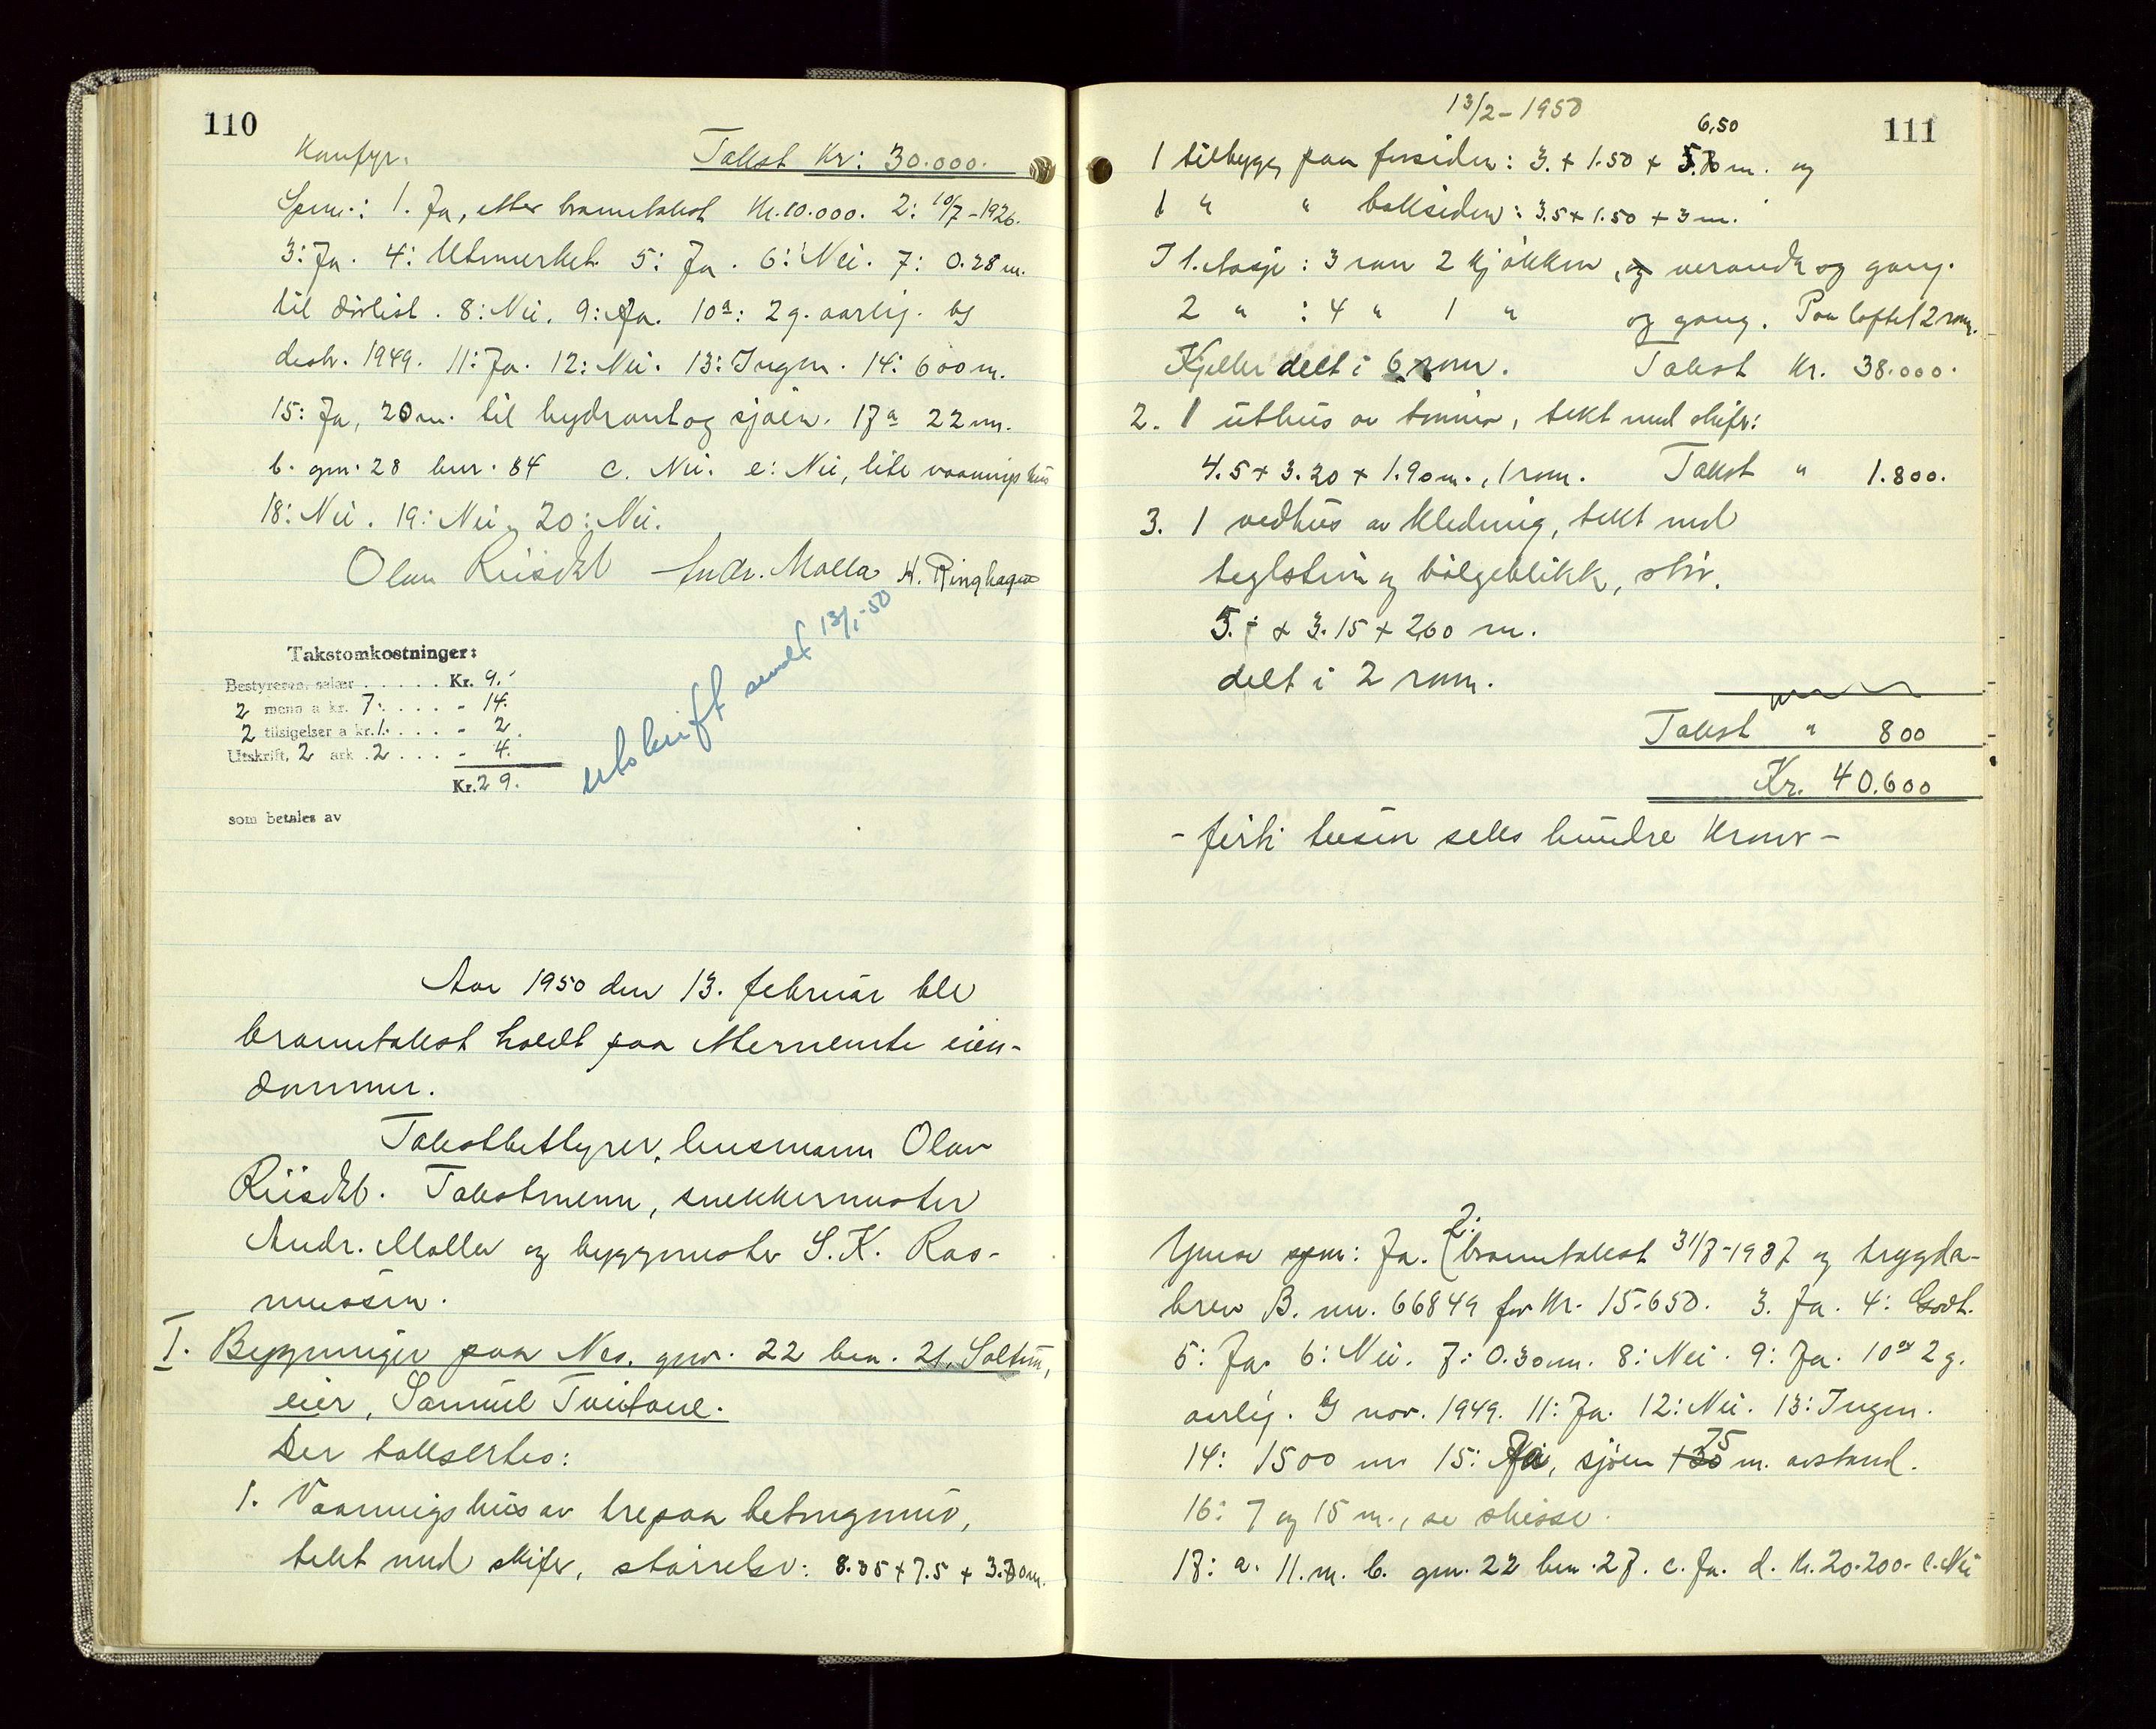 110
Komfyr. Takst Kr: 30.000.
Spm.: 1. Ja, etter branntakst Kr. 10.000. 2: 10/7-1926.
3: Ja. 4: Utmerket. 5: Ja. 6: Nei. 7: 0.28 m.
til dørlist. 8: Nei. 9: Ja. 10a: 2 g. aarlig. b)
desbr. 1949. 11: Ja. 12: Nei. 13: Ingen. 14: 600 m.
15: Ja, 20 m. til hydrant og sjøen. 17a 22 m.
b. gnr. 28 bnr. 84 c. Nei. e: Nei, lite vaaningshus
18: Nei. 19: Nei. 20: Nei.
Olav Andr. Molla H. Ringhagen
utskrift sendt 13/1-50
Takstomkostninger:
Bestyreren, salær ..... Kr. 9.-
2 menn a kr. 7. .... - 14.
2 tilsigelser a kr. 1. ... - 2.
Utskrift, 2 ark 2 ... - 4.
Kr. 29.
som betales av
Aar 1950 den 13. februar ble
branntakst holdt paa etternemte eien-
dommer.
Takstbestyrer, lensmann Olav
Takstmenn, snekkermester
Andr. Molla og byggmester S. K. Ras-
mussen.
I. Bygninger paa Nes. gnr. 22 bnr. 21, Soltun,
eier, Samuel Tveitane.
Der taksertes:
1. Vaaningshus av tre paa betongmur,
tekt med skifer, størrelse: 8.35 + 7.5 + 3.70 m.
13/2-1950
111
6,50
1 tilbygg paa forsiden: 3. + 1.50 + m. og
1 " " baksiden: 3.5 + 1.50 + 3 m.
I 1. etasje: 3 rom 2 kjøkken, og veranda og gang.
2 " : 4 " 1 " og gang. Paa loftet 2 rom.
Kjeller delt i 6 rom. Takst Kr. 38.000.
2. 1 uthus av tømmer, tekt med skifer:
4.5 + 3.20 + 1.90 m., 1 rom. Takst " 1.800.
3. 1 vedhus av kledning, tekt med
teglstein og bølgeblikk, størr.
5. + 3.15 + 2,60 m.
delt i 2 rom.
Takst " 800
Kr. 40.600
- førti tusen seks hundre kroner -
Ymse spm: Ja. 2: (branntakst 31/7-1937 og trygda-
brev B. nr. 66849 for kr. 15.650. 3. Ja. 4: Godt.
5: Ja. 6: Nei. 7: 0.30 m. 8: Nei. 9: Ja. 10a 2 g.
aarlig. I nov. 1949. 11: Ja. 12: Nei. 13: Ingen.
14: 1500 m 15: Ja, sjøen 75 m. avstand.
16: 7 og 15 m., se skisse.
17: a. 11. m. b. gnr. 22 bnr. 27. c. Ja. d. Kr. 20.200. e. Nei